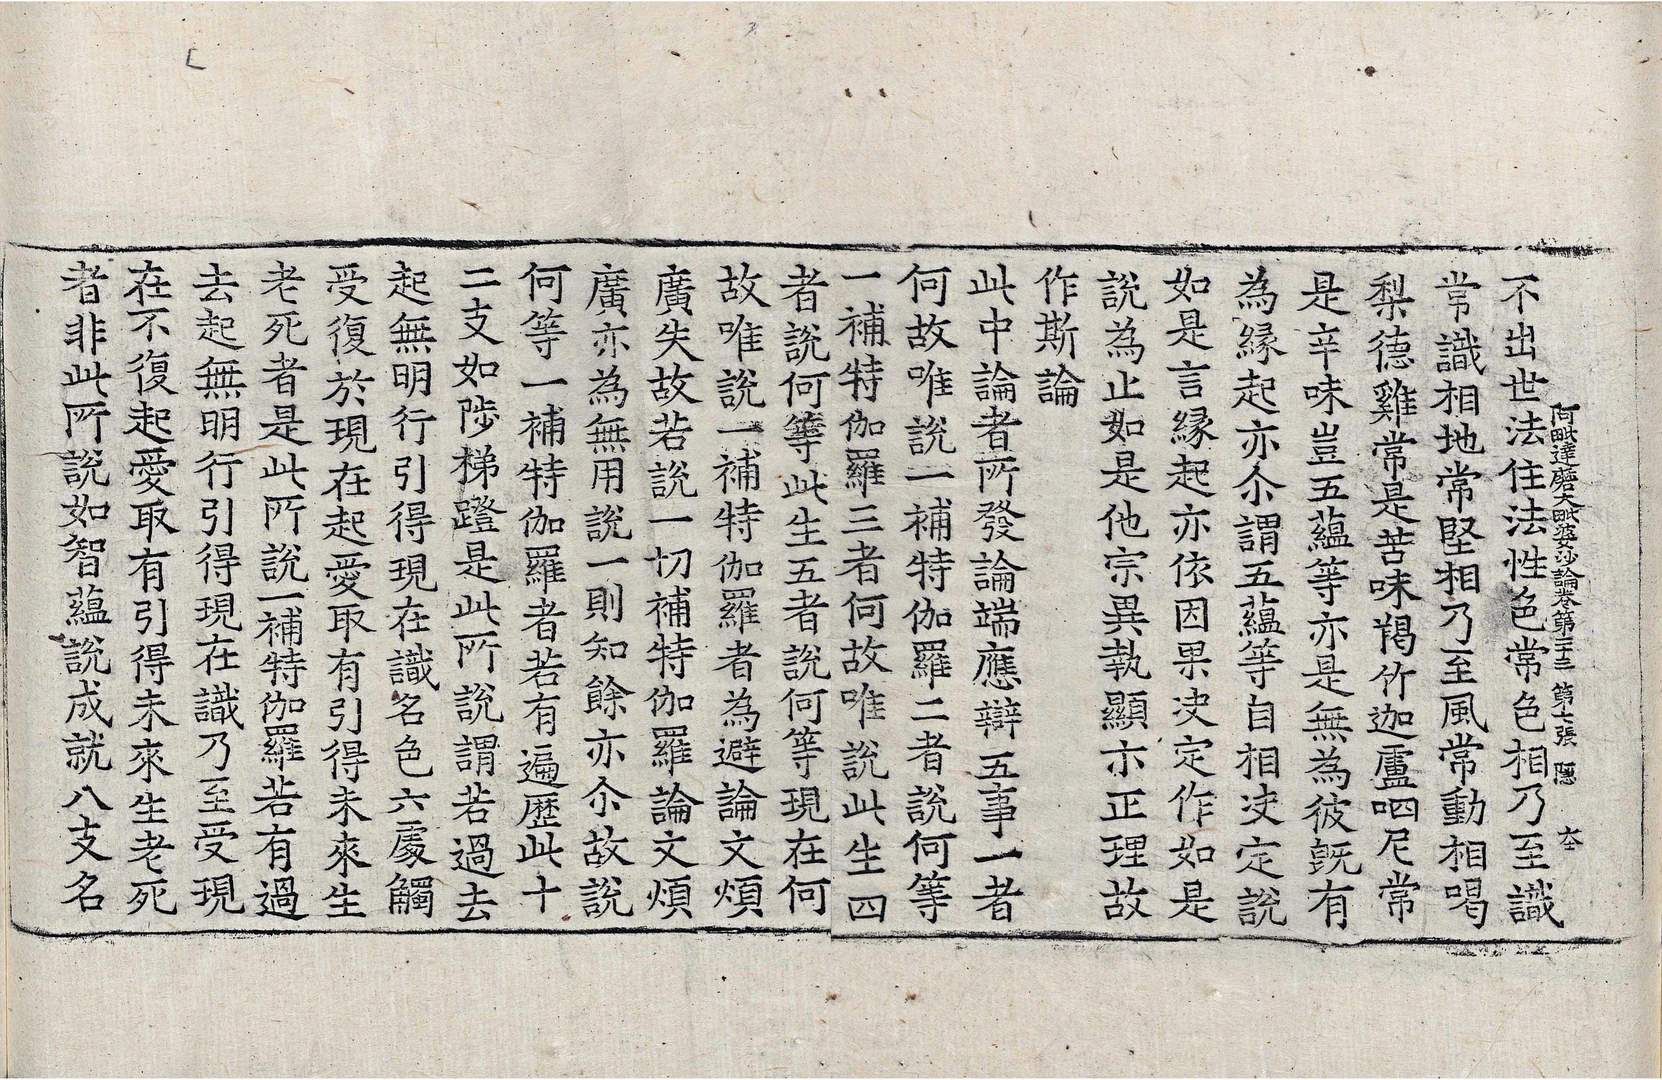 阿毗達磨大毗婆沙論卷第二十三 第七張 隱
不出世法住法性色常色相乃至識
常識相地常堅相乃至風常動相喝
梨德雞常是苦味羯竹迦盧呬尼常
是辛味豈五蘊等亦是無為彼旣有
為緣起亦尒謂五蘊等自相决定說
如是言緣起亦依因果决定作如是
說為止如是他宗異執顯示正理故
作斯論
此中論者所發論端應辯五事一者
何故唯說一補特伽羅二者說何等
一補特伽羅三者何故唯說此生四
者說何等此生五者說何等現在何
故唯說一補特伽羅者為避論文煩
廣失故若說一切補特伽羅論文煩
廣亦為無用說一則知餘亦尒故說
何等一補特伽羅者若有遍歷此十
二支如陟梯蹬是此所說謂若過去
起無明行引得現在識名色六處觸
受復於現在起愛取有引得未來生
老死者是此所說一補特伽羅若有過
去起無明行引得現在識乃至受現
在不復起愛取有引得未來生老死
者非此所說如智蘊說成就八支名